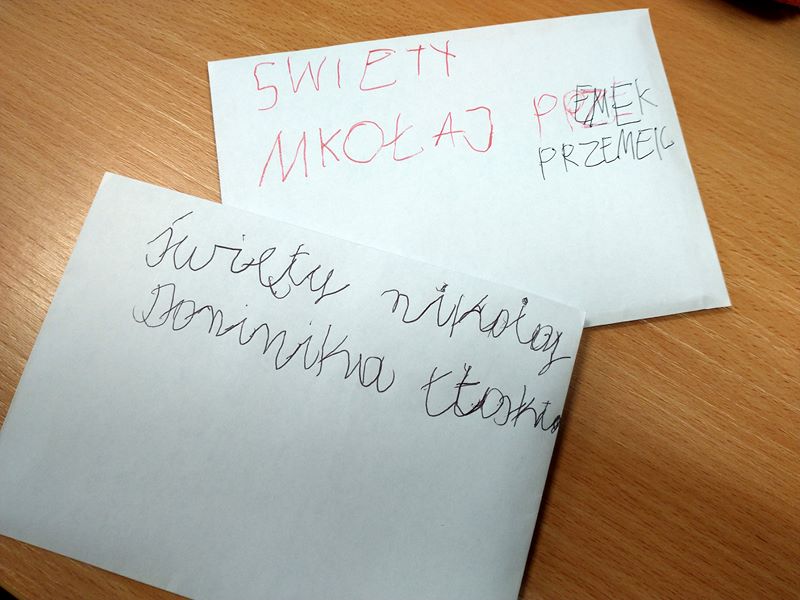 SWIETY
MKOŁAJ PRZEMEK
PRZEMEK
święty nikołaj
Dominika